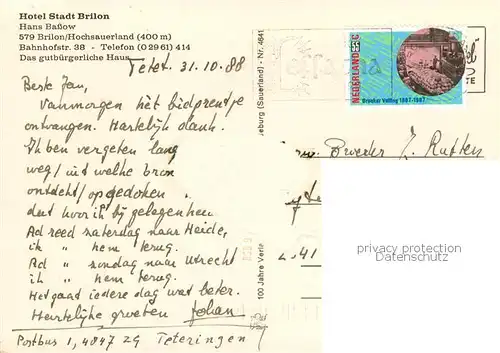 Hotel Stadt Brilon
Hans Baßow
579 Brilon/Hochsauerland (400 m)
Bahnhofstr. 38 - Telefon (0 29 61) 414
Das gutbürgerliche Haus
Tetet. 31.10.88
Beste Jan,
Vanmorgen hèt bidprentje
ontvangen. Hartelijk dank.
Ik ben vergeten lang
weg/uit welke bron
ontdekt/opgedoken "
dat hoor ik bij gelegenheid
Ad reed zaterdag naar Heide,
ik " hem terug.
Ad " zondag naar Utrecht
ik " hem terug.
Het gaat iedere dag wat beter.
Hartelijke groeten Johan
Postbus 1, 4847 ZG Teteringen
eburg (Sauerland) - Nr. 4641
100 Jahre Verla
NEDERLAND 55 c
Broeker Veiling 1887-1987
Broeder J. Rutten
privacy protection